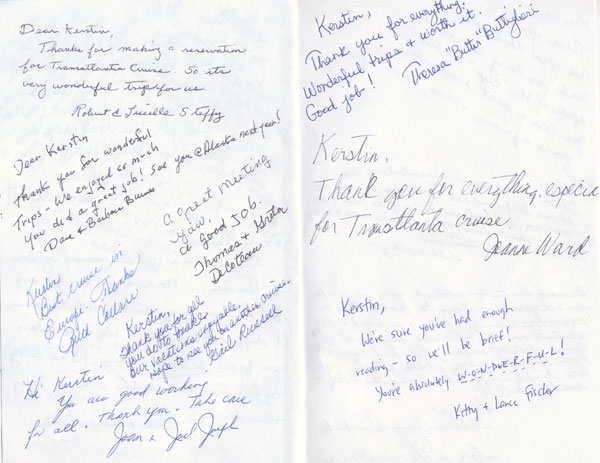 Dear Kerstin,
Thanks for making a reservation
for Transatlantic Cruise. So its
very wonderful trips for us
Robert & Lucille Steffy
Dear Kerstin
Thank you for wonderful
Trips - We enjoyed er much
You did a great job! See you @ Alaska next year!
Dave & Barbara
a great meeting
yaw.
a good JOB.
Thomas &
DeCoteau
Kerstin
Best cruise in
Europe. Thanks
Kerstin,
Thank you for all
you do to make
our vacations enjoyable.
Hope to see you on another cruise.
Gail Russell
Hi' Kerstin
You are good working
for all. Thank you. Take care
Joan & Joel Joseph
Kerstin,
Thank you for everything.
Wonderful trips & worth it.
Good job!
Theresa "Butter" Buttiglieri
Kerstin.
Thank you for everything. especia
for Transtlanta cruise.
Jeanne Ward
Kerstin,
We're sure you've had enough
reading -- so we'll be brief!
You're absolutely W-O-N-D-E-R-F-U-L!
Kitty + Lance Fischer